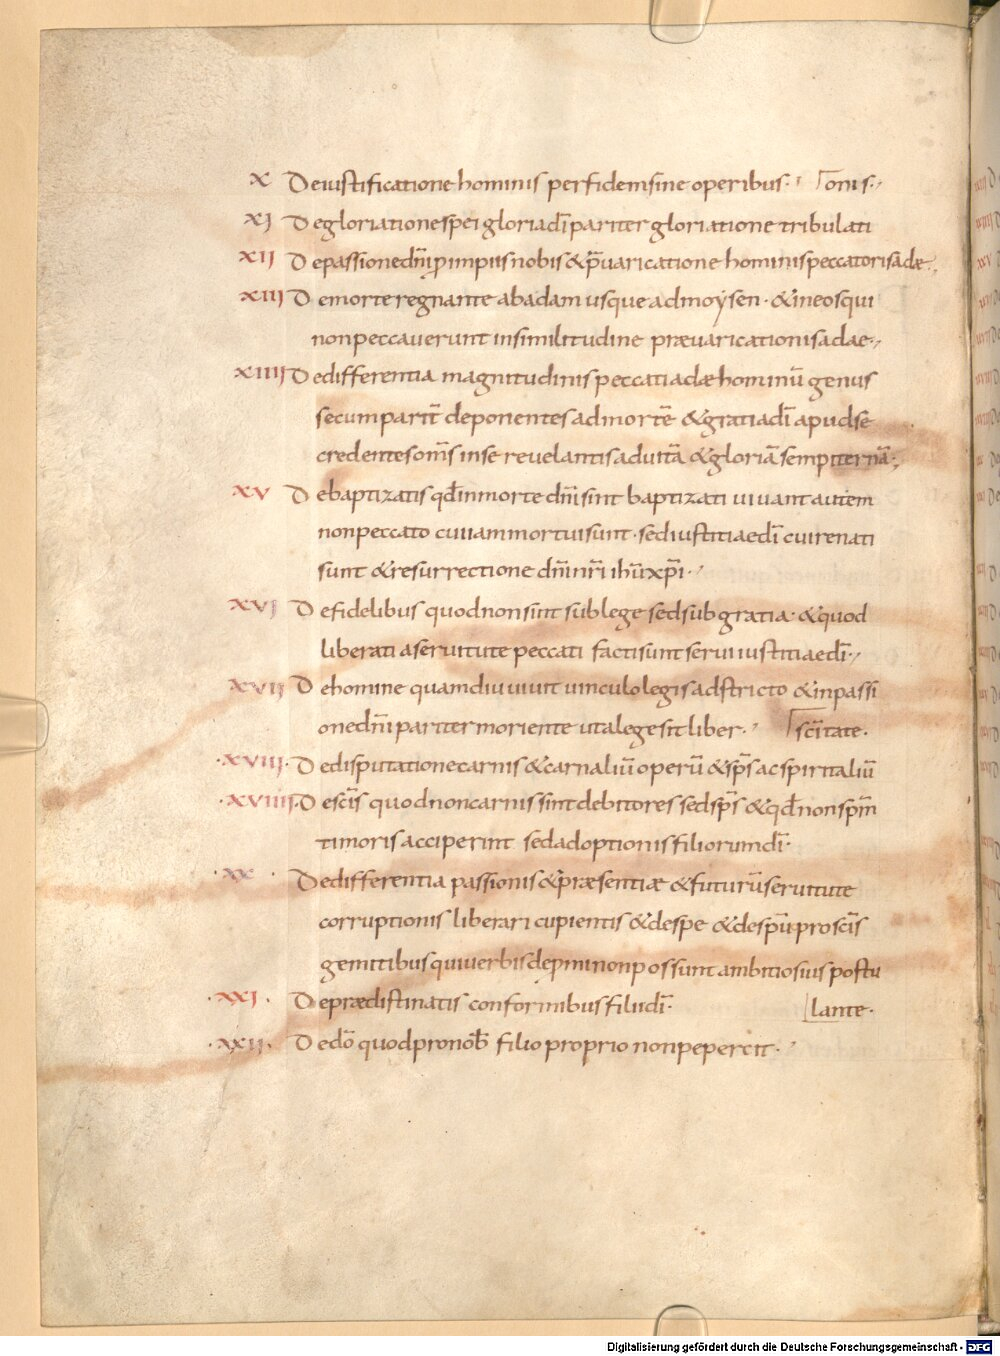 X De iustificatione hominis per fidem sine operibus· ⌈onis·
XI De gloriatione spei gloria dī pariter gloriatione tribulati
XII De passione dn̄i ꝓ impiis nobis & p̄uaricatione hominis peccatoris adæ·
XIII De morte regnante ab adam usque ad moysen· & in eos qui
non peccauerunt in similitudine præuaricationis adae·
XIIII De differentia magnitudinis peccati adæ hominū genus
secum parit̄ deponentes ad mortē & gratia dī apud se
credentes om̄s in se reuelantis ad uitā & gloriā sempiternā·
XV De baptizatis qd̄ in morte dn̄i sint baptizati uiuant autem
non peccato cui iam mortui sunt· sed iustitiae dī cui renati
sunt & resurrectione dn̄i nr̄i ihū xp̄i·
XVI De fidelibus quod non sint sub lege sed sub gratia· & quod
liberati a seruitute peccati facti sunt serui iustitiae dī·
XVII De homine quamdiu uiuit uinculo legis adstricto & in passi
one dn̄i pariter moriente ut a lege sit liber· ⌈sc̄itate·
·XVIII· De disputatione carnis & carnaliū operū & sp̄s ac spiritaliū
·XVIIII· De sc̄is quod non carnis sint debitores sed sp̄s & qd̄ non sp̄m
timoris acciperint sed adoptionis filiorum dī·
·XX· De differentia passionis & præsentiæ & futurū seruitute
corruptionis liberari cupientis & de spe & de spū pro sc̄is
gemitibus qui uerbis depmi non possunt ambitiosius postu
·XXI· De prædistinatis conformibus filii dī· ⌊lante·
·XXII· De dō quod pro nob̄ filio proprio non pepercit·
Digitalisierung gefördert durch die Deutsche Forschungsgemeinschaft - DFG